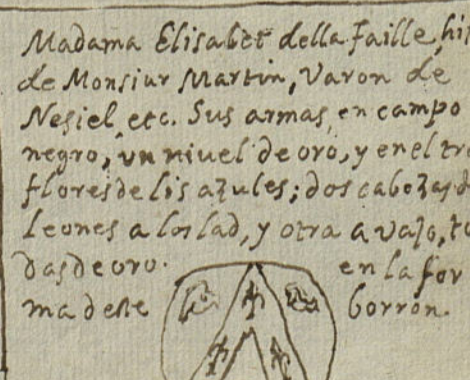 Madama Elisabet della Faille, hi
de Monsiur Martin, Varon de
Nesiel etc. Sus armas, en campo
negro, un nivel de oro, y en el tre
flores de lis azules; dos cabezas d
leones a los lad, y otra avajo, to
das de oro. en la for
ma deste borrón.